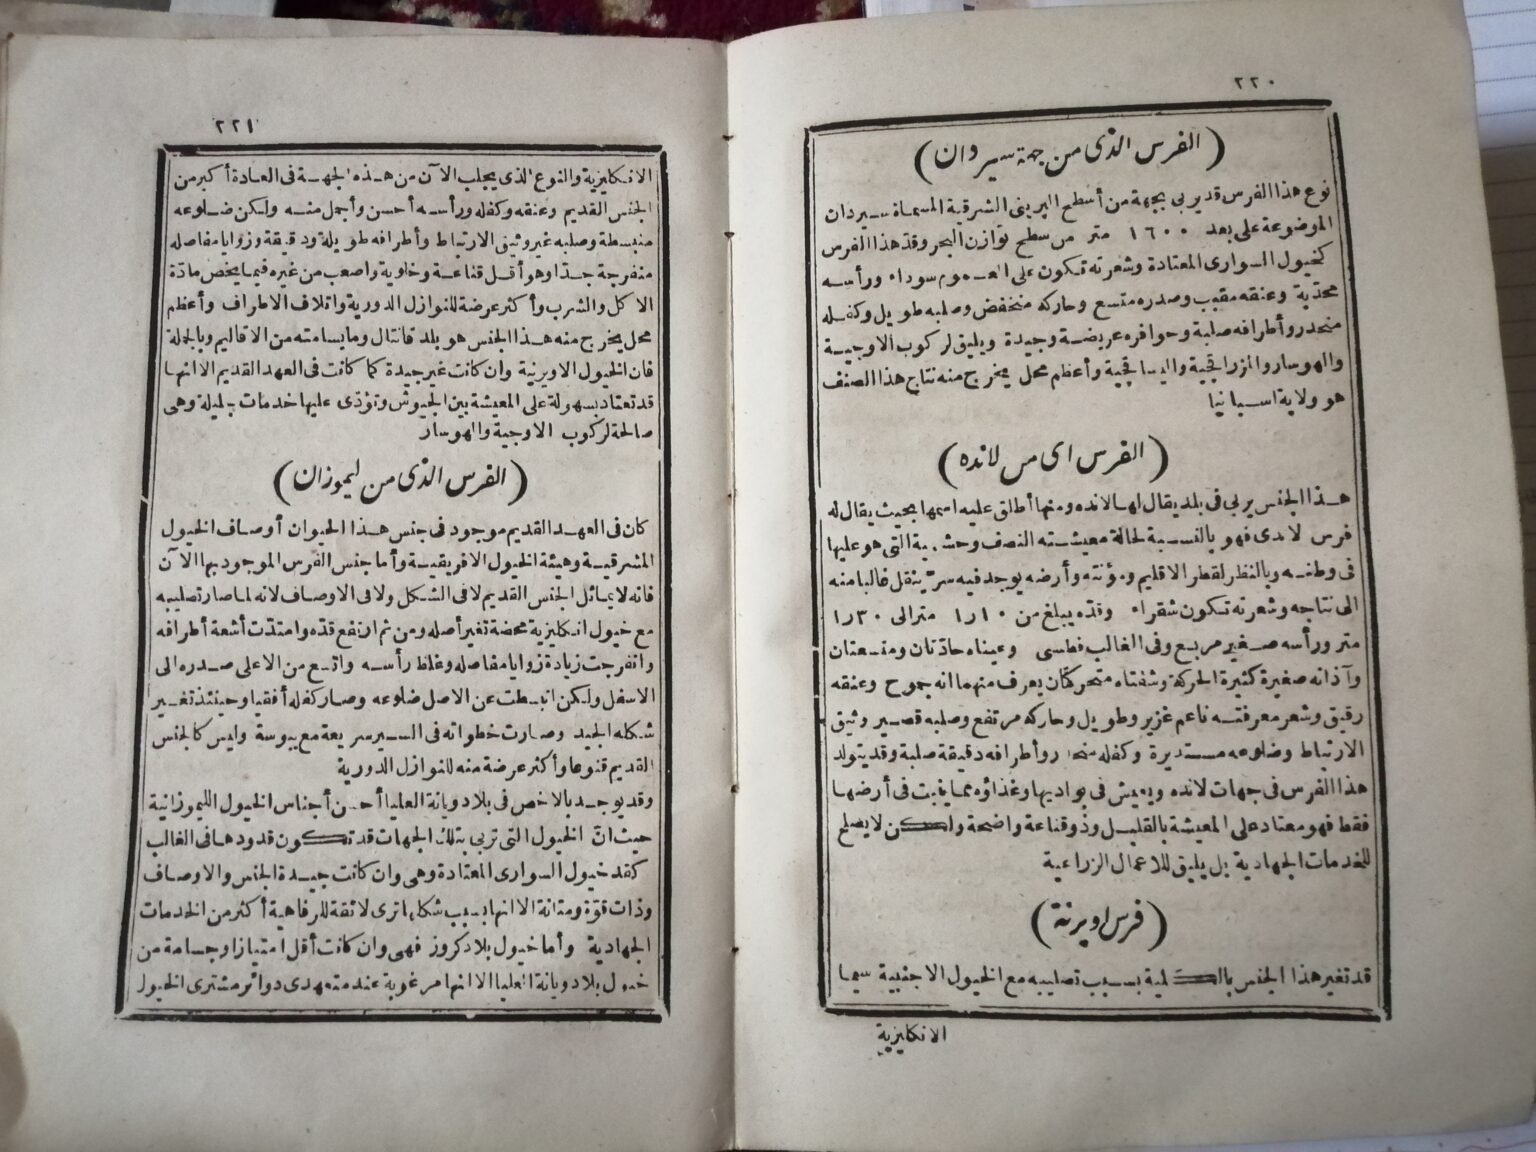 ٢٢٠
(الفرس الذى من جهة سيردان)
نوع هذا الفرس قد يربى بجهة من أسطح البرينى الشرقية المسماة سيردان
الموضوعة على بعد ١٦٠٠ متر من سطح توازن البحر وقد هذا الفرس
كخيول السوارى المعتادة وشعرته تكون على العموم سوداء ورأسه
محدّبة وعنقه مقبب وصدره متسع وحاركه منخفض وصلبه طويل وكفله
منحدر وأطرافه صلبة وحوافره عريضة وجيدة ويليق لركوب الاوجية
والهوسار والمزراقجية واليساقجية وأعظم محل يخرج منه نتاج هذا الصنف
هو ولاية اسبانيا
(الفرس اى من لانده)
هذا الجنس يربى فى بلد يقال لها لانده ومنها أطلق عليه اسمها بحيث يقال له
فرس لاندى فهو بالنسبة لحالة معيشته النصف وحشية التى هو عليها
فى وطنه وبالنظر لقطر الاقليم ومؤنته وأرضه يوجد فيه سرّ ينقل غالبا منه
الى نتاجه وشعرته تكون شقراء وقدّه يبلغ من ١٠ر١ متر الى ٣٠ر١
متر ورأسه صغير مربع وفى الغالب فطسى وعيناه حادّتان ومتسعتان
وآذانه صغيرة كثيرة الحركة وشفتاه متحركتان يعرف منهما انه جموح وعنقه
رقيق وشعر معرفته ناعم غزير وطويل وحاركه مرتفع وصلبه قصير وثيق
الارتباط وضلوعه مستديرة وكفله منحدر وأطرافه دقيقة صلبة وقد يتولد
هذا الفرس فى جهات لانده ويعيش فى بواديها وغذاؤه مما ينبت فى أرضها
فقط فهو معتاد على المعيشة بالقليل وذو قناعة واضحة ولكن لا يصلح
للخدمات الجهادية بل يليق للاعمال الزراعية
(فرس اويرنة)
قد تغير هذا الجنس بالكلية بسبب تصليبه مع الخيول الاجنبية سيما
الانكليزية
٢٢١
الانكليزية والنوع الذى يجلب الآن من هذه الجهة فى العادة أكبر من
الجنس القديم وعنقه وكفله ورأسه أحسن وأجمل منه ولكن ضلوعه
منبسطة وصلبه غير وثيق الارتباط وأطرافه طويلة ودقيقة وزوايا مفاصله
منفرجة جدّا وهو أقل قناعة وخاوية واصعب من غيره فيما يخص مادّة
الاكل والشرب وأكثر عرضة للنوازل الدورية واتلاف الاطراف وأعظم
محل يخرج منه هذا الجنس هو بلد قانتال وما يسامته من الاقاليم وبالجملة
فان الخيول الاويرنية وان كانت غير جيدة كما كانت فى العهد القديم الا انها
قد تعتاد بسهولة على المعيشة بين الجيوش وتؤدّى عليها خدمات جليلة وهى
صالحة لركوب الاوجية والهوسار
(الفرس الذى من ليموزان)
كان فى العهد القديم موجود فى جنس هذا الحيوان أوصاف الخيول
المشرقية وهيئة الخيول الافريقية وأما جنس الفرس الموجود بها الآن
فانه لا يماثل الجنس القديم لا فى الشكل ولا فى الاوصاف لانه لما صار تصليبه
مع خيول انكليزية محضة تغير أصله ومن ثم ارتفع قدّه وامتدّت أشعة أطرافه
وانفرجت زيادة زوايا مفاصله وغلظ رأسه واتسع من الاعلى صدره الى
الاسفل ولكن انبسطت عن الاصل ضلوعه وصار كفله أفقيا وحينئذ تغير
شكله الجيد وصارت خطواته فى السير سريعة مع يبوسة وليس كالجنس
القديم قنوعا وأكثر عرضة منه للنوازل الدورية
وقد يوجد بالاخص فى بلاد ويانة العليا أحسن أجناس الخيول الليموزانية
حيث انّ الخيول التى تربى بتلك الجهات قد تكون قدودها فى الغالب
كقد خيول السوارى المعتادة وهى وان كانت جيدة الجنس والاوصاف
وذات قوّة ومتانة الا انها بسبب شكلها ترى لائقة للرفاهية أكثر من الخدمات
الجهادية وأما خيول بلاد كروز فهى وان كانت أقل امتيازا وجسامة من
خيول بلاد ويانة العليا الا انها مرغوبة عند متعهدى دوائر مشترى الخيول